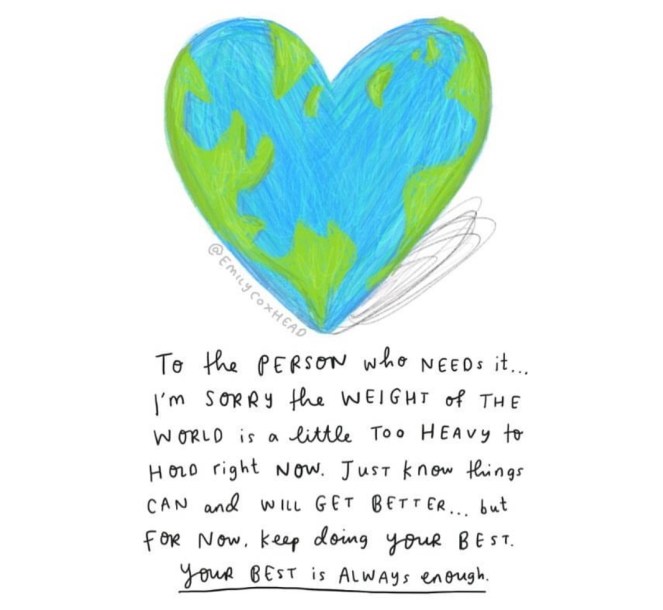 @EMILY COXHEAD
To the PERSON who NEEDs it...
I'm SORRY the WEIGHT of THE
WORLD is a little Too HEAVy to
HOLD right NOW. JUST know things
CAN and WILL GET BETTER... but
FOR NOW, keep doing youR BEST.
youR BEST is ALWAYs enough.